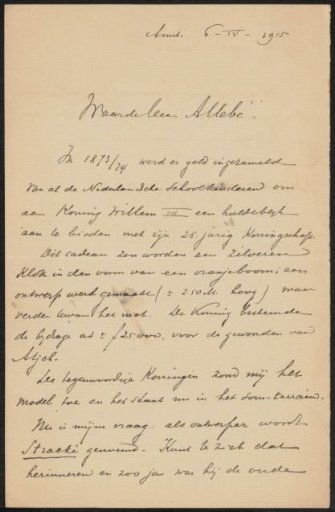 Amst. 6-IV-1915
Waarde Heer Allebé!
In 1873/74 werd er geld ingezameld
van al de Nederlandsche Schoolkinderen om
aan Koning Willem III een huldeblijk
aan te bieden met zijn 25 jarig Koningschap.
Dit cadeau zou worden een zilveren
Klok in den vorm van een oranjeboom; een
ontwerp werd gemaakt (± 250 hoog) maar
verder kwam het niet. De Koning bestemde
de bijdrage ad ± ƒ 25000, voor de gewonden van
Atjeh.
De tegenwoordige Koningin zond mij het
model toe en het staat nu in het sous-terrain.
Nu is mijne vraag: als ontwerper wordt
Stracké genoemd. Kunt U zich dat
herinneren en zoo ja was hij de oude